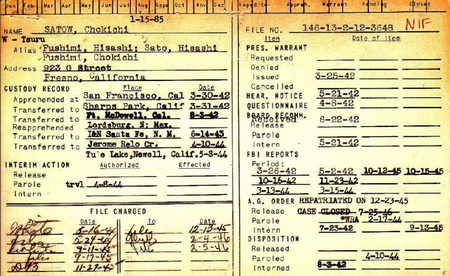 Jan Feb Mar Apr May Jun Jul Aug Sep Oct Nov Dec
1-15-85
NAME SATOW, Chokichi
W - Tsuru
Alias Fushimi, Hisashi; Sato, Hisashi
Fushimi, Chokichi
Address 923 G Street
Fresno, California
CUSTODY RECORD Place Date
Apprehended at San Francisco, Cal 3-30-42
Transferred to Sharps Park, Calif 3-31-42
Transferred to Ft. McDowell, Cal. 8-3-42
Reapprehended Lordsburg, N. Mex.
Transferred to I&N Santa Fe, N. M. 6-14-43
Transferred to Jerome Relo Cr. 4-10-44
Tule Lake, Newell, Calif. 5-8-44
INTERIM ACTION Authorized Effected
Release
Parole trvl 4-8-44
Intern
FILE CHARGED
5-16-44 12-13-45
5-29-44 2-4-46
9-11-44 2-5-46
9-17-45
11-27-45
FILE NO. 146-13-2-12-3648 NIF
Item Date of Item
PRES. WARRANT
Requested
Denied
Issued 3-25-42
Cancelled
HEAR. NOTICE 5-21-42
QUESTIONNAIRE 4-8-42
BOARD RECOMM.
Received 6-22-42
Release
Parole
Intern 5-21-42
FBI REPORTS
Period:
3-26-42 5-2-42 10-12-45 10-15-45
10-16-42 11-23-42
3-13-44 3-15-44
A.G. ORDER REPATRIATED ON 12-23-45
Release CASE CLOSED 7-25-46
Parole *WRA 2-17-44
Intern 7-23-42 9-13-45
DISPOSITION
Released
Paroled 4-10-44
Interned 8-3-42